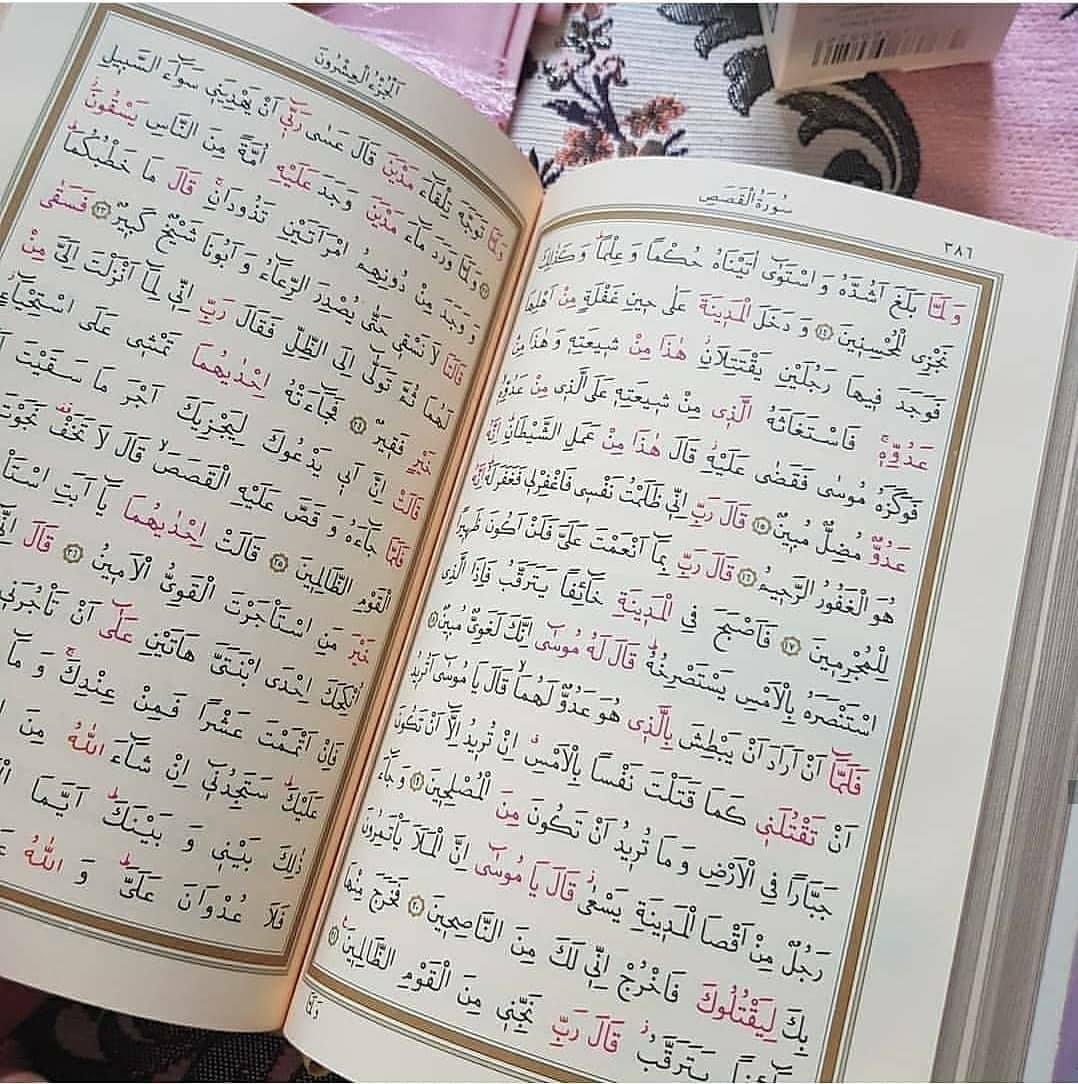 سُورَةُ الْقَصَصِ
٣٨٦
وَلَمَّا بَلَغَ اَشُدَّهُ وَ اسْتَوٰٓى اٰتَيْنَاهُ حُكْمًا وَ عِلْمًا وَ كَذٰلِكَ
نَجْزِى الْمُحْسِنٖينَ ١٤ وَ دَخَلَ الْمَدٖينَةَ عَلٰى حٖينِ غَفْلَةٍ مِنْ اَهْلِهَا
فَوَجَدَ فٖيهَا رَجُلَيْنِ يَقْتَتِلَانِ هٰذَا مِنْ شٖيعَتِهٖ وَ هٰذَا مِنْ
عَدُوِّهٖ فَاسْتَغَاثَهُ الَّذٖى مِنْ شٖيعَتِهٖ عَلَى الَّذٖى مِنْ عَدُوِّهٖ
فَوَكَزَهُ مُوسٰى فَقَضٰى عَلَيْهِ قَالَ هٰذَا مِنْ عَمَلِ الشَّيْطَانِ اِنَّهُ
عَدُوٌّ مُضِلٌّ مُبٖينٌ ١٥ قَالَ رَبِّ اِنّٖى ظَلَمْتُ نَفْسٖى فَاغْفِرْلٖى فَغَفَرَ لَهُ اِنَّهُ
هُوَ الْغَفُورُ الرَّحٖيمُ ١٦ قَالَ رَبِّ بِمَٓا اَنْعَمْتَ عَلَىَّ فَلَنْ اَكُونَ ظَهٖيرًا
لِلْمُجْرِمٖينَ ١٧ فَاَصْبَحَ فِى الْمَدٖينَةِ خَٓائِفًا يَتَرَقَّبُ فَاِذَا الَّذٖى
اسْتَنْصَرَهُ بِالْاَمْسِ يَسْتَصْرِخُهُ قَالَ لَهُ مُوسٰٓى اِنَّكَ لَغَوِىٌّ مُبٖينٌ ١٨
فَلَمَّٓا اَنْ اَرَادَ اَنْ يَبْطِشَ بِالَّذٖى هُوَ عَدُوٌّ لَهُمَا قَالَ يَا مُوسٰٓى اَتُرٖيدُ
اَنْ تَقْتُلَنٖى كَمَا قَتَلْتَ نَفْسًا بِالْاَمْسِ اِنْ تُرٖيدُ اِلَّٓا اَنْ تَكُونَ
جَبَّارًا فِى الْاَرْضِ وَ مَا تُرٖيدُ اَنْ تَكُونَ مِنَ الْمُصْلِحٖينَ ١٩ وَ جَٓاءَ
رَجُلٌ مِنْ اَقْصَا الْمَدٖينَةِ يَسْعٰى قَالَ يَا مُوسٰٓى اِنَّ الْمَلَاَ يَاْتَمِرُونَ
بِكَ لِيَقْتُلُوكَ فَاخْرُجْ اِنّٖى لَكَ مِنَ النَّاصِحٖينَ ٢٠ فَخَرَجَ مِنْهَا
يَتَرَقَّبُ قَالَ رَبِّ نَجِّنٖى مِنَ الْقَوْمِ الظَّالِمٖينَ ٢١
وَلَمَّا
اَلْجُزْءُ الْعِشْرُونَ
وَلَمَّا تَوَجَّهَ تِلْقَٓاءَ مَدْيَنَ قَالَ عَسٰى رَبّٖٓى اَنْ يَهْدِيَنٖى سَوَٓاءَ السَّبٖيلِ
٢٢ وَلَمَّا وَرَدَ مَٓاءَ مَدْيَنَ وَجَدَ عَلَيْهِ اُمَّةً مِنَ النَّاسِ يَسْقُونَ
وَ وَجَدَ مِنْ دُونِهِمُ امْرَاَتَيْنِ تَذُودَانِ قَالَ مَا خَطْبُكُمَا
قَالَتَا لَا نَسْقٖى حَتّٰى يُصْدِرَ الرِّعَٓاءُ وَ اَبُونَا شَيْخٌ كَبٖيرٌ ٢٣ فَسَقٰى
لَهُمَا ثُمَّ تَوَلّٰٓى اِلَى الظِّلِّ فَقَالَ رَبِّ اِنّٖى لِمَٓا اَنْزَلْتَ اِلَىَّ مِنْ
خَيْرٍ فَقٖيرٌ ٢٤ فَجَٓاءَتْهُ اِحْدٰيهُمَا تَمْشٖى عَلَى اسْتِحْيَٓاءٍ
قَالَتْ اِنَّ اَبٖى يَدْعُوكَ لِيَجْزِيَكَ اَجْرَ مَا سَقَيْتَ
فَلَمَّا جَٓاءَهُ وَ قَصَّ عَلَيْهِ الْقَصَصَ قَالَ لَا تَخَفْ نَجَوْتَ
الْقَوْمِ الظَّالِمٖينَ ٢٥ قَالَتْ اِحْدٰيهُمَا يَٓا اَبَتِ
خَيْرَ مَنِ اسْتَاْجَرْتَ الْقَوِىُّ الْاَمٖينُ ٢٦ قَالَ
اُنْكِحَكَ اِحْدَى ابْنَتَىَّ هَاتَيْنِ عَلٰٓى اَنْ تَاْجُرَنٖى
فَاِنْ اَتْمَمْتَ عَشْرًا فَمِنْ عِنْدِكَ وَ مَٓا
عَلَيْكَ سَتَجِدُنٖٓى اِنْ شَٓاءَ اللّٰهُ مِنَ
ذٰلِكَ بَيْنٖى وَ بَيْنَكَ اَيَّمَا
فَلَا عُدْوَانَ عَلَىَّ وَ اللّٰهُ